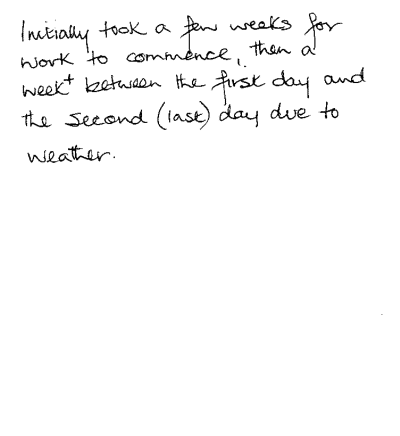 Initially took a few weeks for
work to commence, then a
week+ between the first day and
the second (last) day due to
weather.